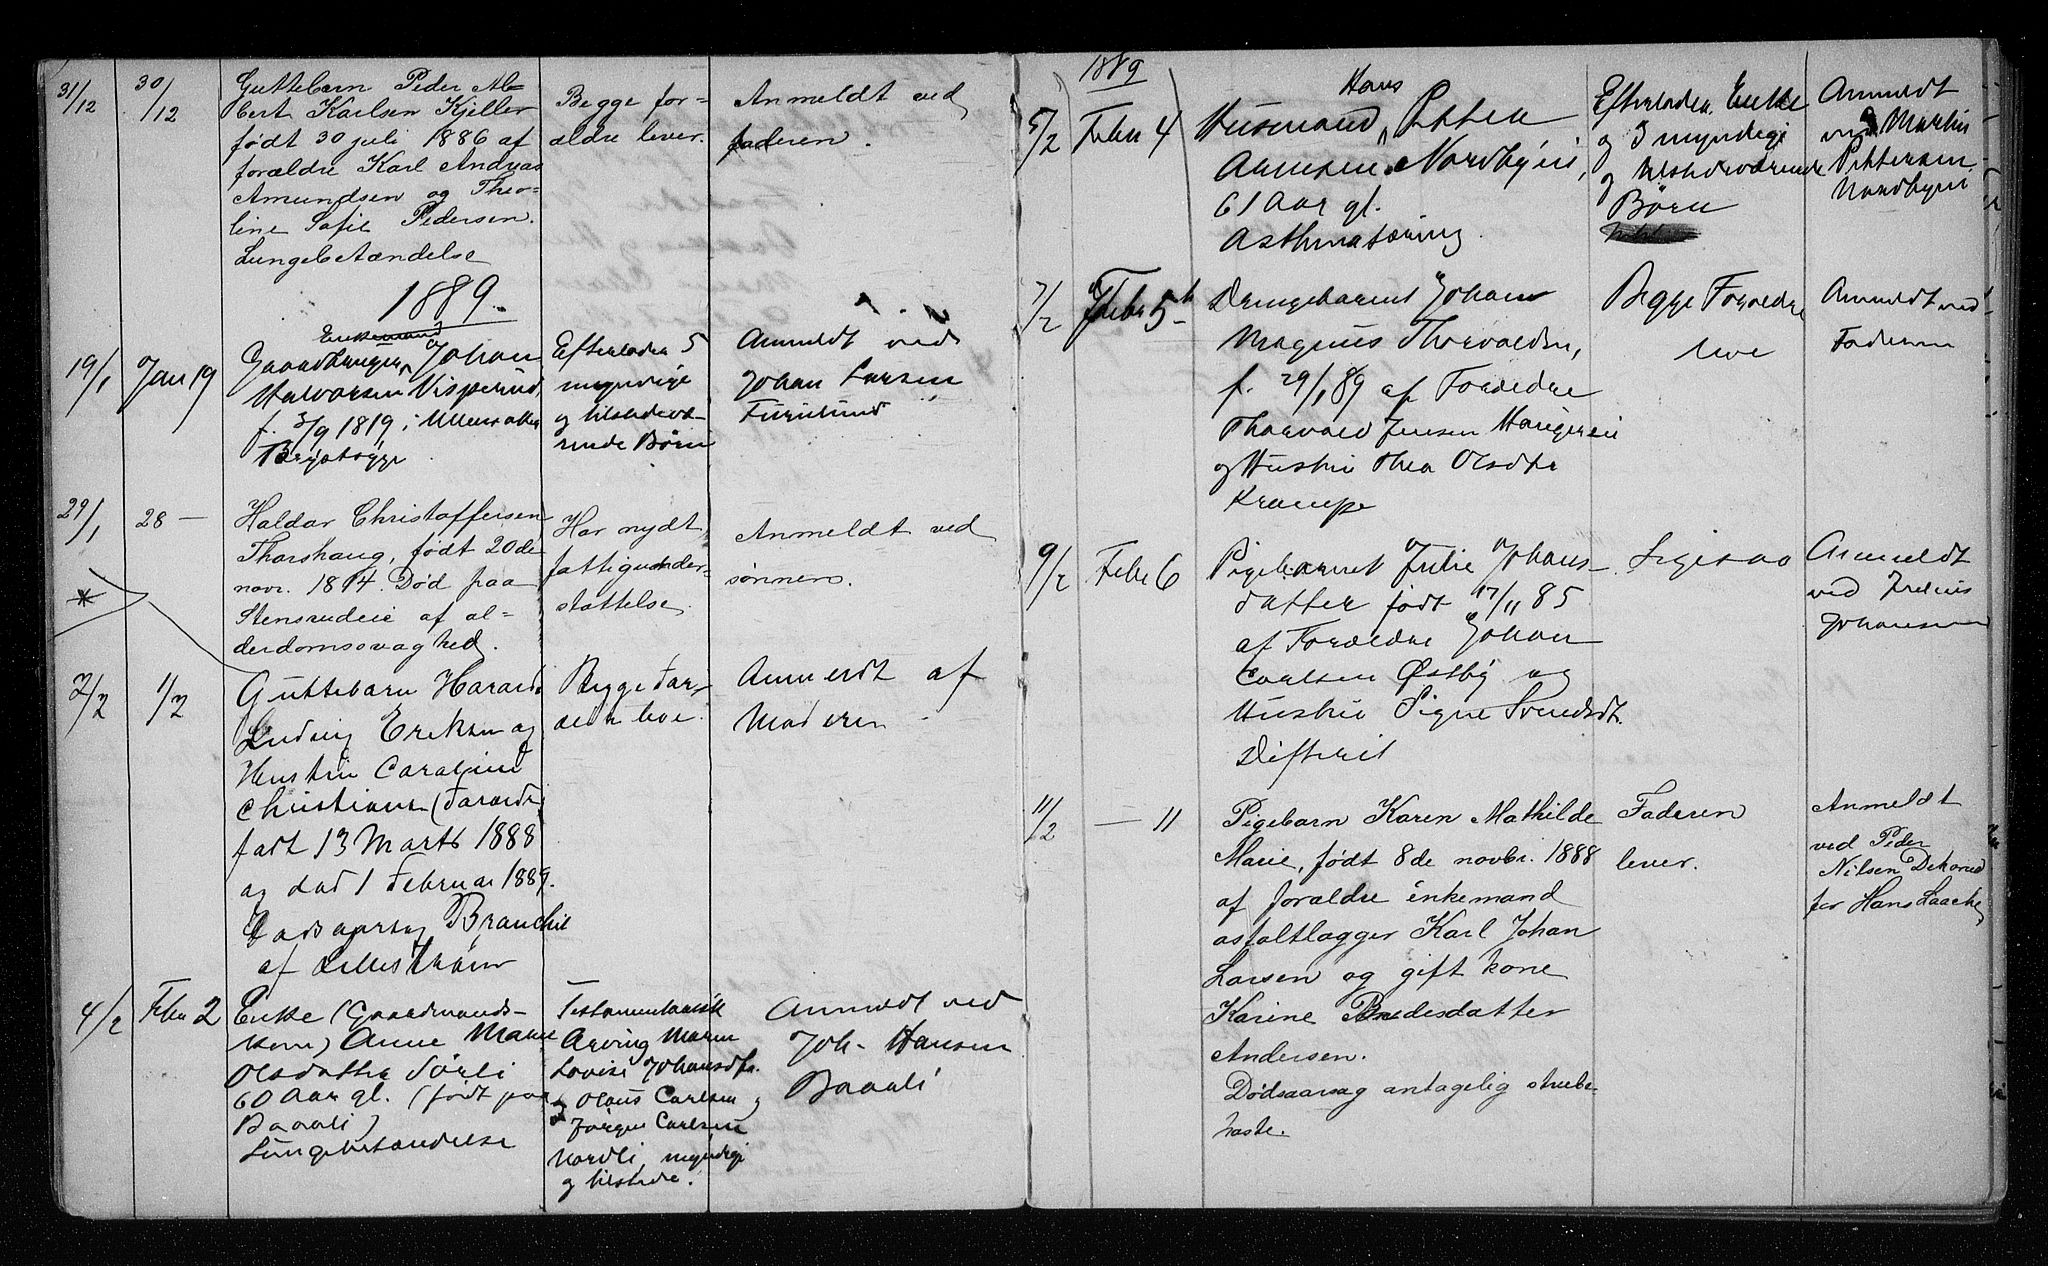 31/12
30/12
Guttebarn Peder Al-
bert Karlsen Kjeller
født 30 juli 1886 af
forældre Karl Andreas
Amundsen og Theo-
line Sofie Pedersen.
Lungebetændelse
Begge for-
ældre lever.
Anmeldt ved
faderen.
1889.
19/1
Jan 19
Enkemand
Gaardbruger Johan
Halvorsen Visperud,
f. 3/9 1819, i Ullensaker
Brystsyge
Efterlader 5
myndige
og tilstedevæ-
rende Børn
Anmeldt ved
Johan Larsen
Furulund
29/1
28 —
Haldor Christoffersen
Thorshaug, født 20de
novr. 1814. Død paa
Stensrudeie af al-
derdomssvaghed.
Har nydt
fattigunder-
støttelse.
Anmeldt ved
sønnen.
*
2/2
1/2
Guttebarn Harald
Ludvig Eriksen og
Hustru Caroline
Christians (Forældr
født 13 Marts 1888
og død 1 Februar 1889.
Dødsaarsag Bronchit
af Lillestrøm
Begge For-
ældre leve.
Anmeldt af
Moderen
4/2
Febr 2
Enke (Gaardmands-
kone) Anne Marie
Olsdatter Sørli
60 Aar gl. (født paa
Baaali)
Lungebetændelse
Testamentarisk
Arving Maren
Lovise Johansdtr.
og Olaus Carlsen
Jørgen Carlsen
Nordli, myndige
og tilstede.
Anmeldt ved
Joh. Hansen
Baaali
1889
5/2
Febr 4
Hans
Husmand Petter
Arnesen Nordbyeie,
61 Aar gl.
Asthmatæring
Efterlader Enke
og 3 myndige
og tilstedeværende
Børn
Anmeldt
ved Martin
Pettersen
Nordbyeie
7/2
Febr 5
Drengebarnet Johan
Magnus Thorvaldsen,
f. 29/1 89 af Forældre
Thorvald Jensen Haugereie
og Hustru Thea Olsdtr
Krampe
Begge Forældre
leve
Anmeldt ved
Faderen
9/2
Febr 6
Pigebarnet Julie Johans-
datter født 17/11 85
af Forældre Johan
Carlsen Østby og
Hustru Signe Svendsdt.
Difterit
Ligesaa
Anmeldt
ved Julius
Johansen
11/2
— 11
Pigebarn Karen Mathilde
Marie, født 8de novbr. 1888
af forældre enkemand
asfaltlægger Karl Johan
Larsen og gift kone
Karine Bredesdatter
Andersen.
Dødsaarsag antagelig strube-
hoste.
Faderen
lever.
Anmeldt
ved Peder
Nilsen
for Hans Laache